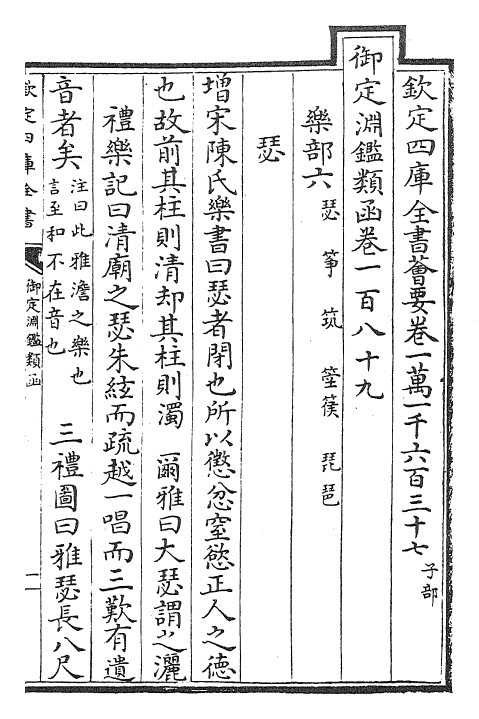 欽定四庫全書薈要卷一萬一千六百三十七 子部
御定淵鑑類函卷一百八十九
樂部六 瑟 箏 筑 箜篌 琵琶
瑟
增宋陳氏樂書曰瑟者閉也所以懲忿窒慾正人之德
也故前其柱則清却其柱則濁 爾雅曰大瑟謂之灑
禮樂記曰清廟之瑟朱絃而疏越一唱而三歎有遺
音者矣 注曰此雅澹之樂也言至和不在音也 三禮圖曰雅瑟長八尺
欽定四庫全書
御定淵鑑類函
一